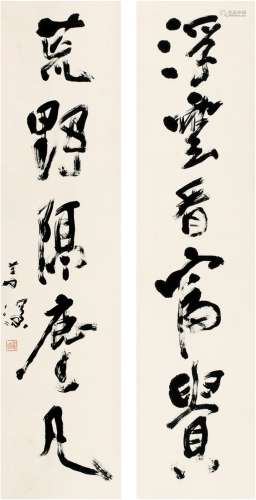 浮雲看富貴
荒野隔塵凡